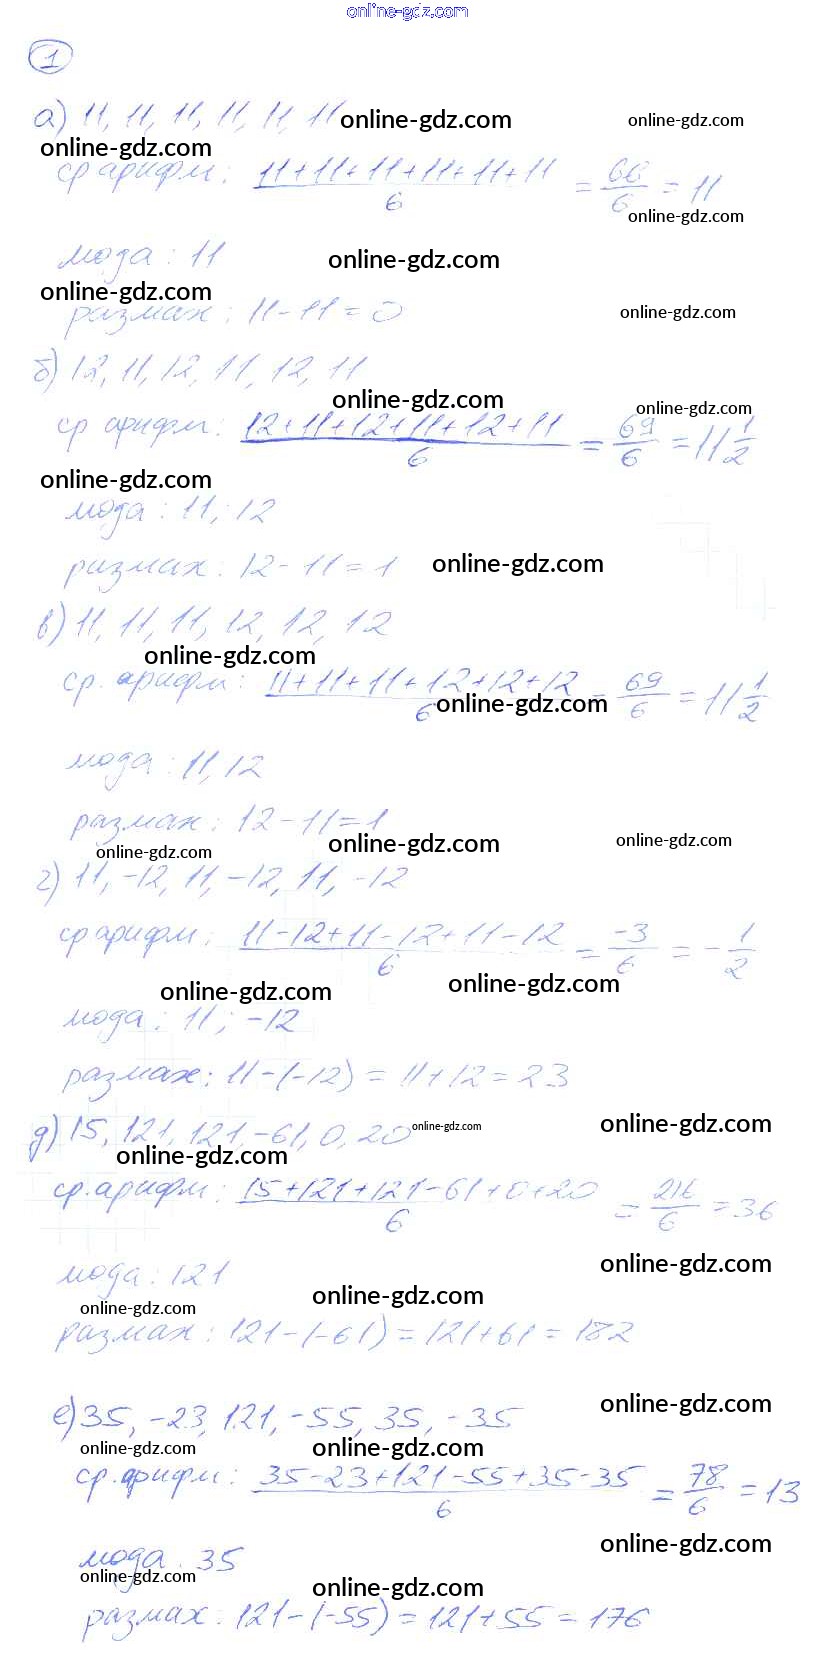 online-gdz.com
1
а) 11, 11, 11, 11, 11, 11 online-gdz.com online-gdz.com
online-gdz.com
ср арифм: (11+11+11+11+11+11)/6 = 66/6 = 11
online-gdz.com
мода: 11 online-gdz.com
online-gdz.com
размах: 11-11=0 online-gdz.com
б) 12, 11, 12, 11, 12, 11
online-gdz.com online-gdz.com
ср арифм: (12+11+12+11+12+11)/6 = 69/6 = 11 1/2
online-gdz.com
мода: 11; 12
размах: 12-11=1 online-gdz.com
в) 11, 11, 11, 12, 12, 12
online-gdz.com
ср. арифм: (11+11+11+12+12+12)/6 = 69/6 = 11 1/2
online-gdz.com
мода: 11, 12
размах: 12-11=1
online-gdz.com online-gdz.com online-gdz.com
г) 11, -12, 11, -12, 11, -12
ср арифм: (11-12+11-12+11-12)/6 = -3/6 = -1/2
online-gdz.com online-gdz.com
мода: 11; -12
размах: 11-(-12) = 11+12=23
д) 15, 121, 121, -61, 0, 20 online-gdz.com online-gdz.com
online-gdz.com
ср. арифм: (15+121+121-61+0+20)/6 = 216/6 = 36
online-gdz.com
мода: 121
online-gdz.com online-gdz.com
размах: 121-(-61) = 121+61 = 182
online-gdz.com
е) 35, -23, 121, -55, 35, -35
online-gdz.com online-gdz.com
ср. арифм: (35-23+121-55+35-35)/6 = 78/6 = 13
online-gdz.com
мода: 35
online-gdz.com online-gdz.com
размах: 121-(-55) = 121+55 = 176